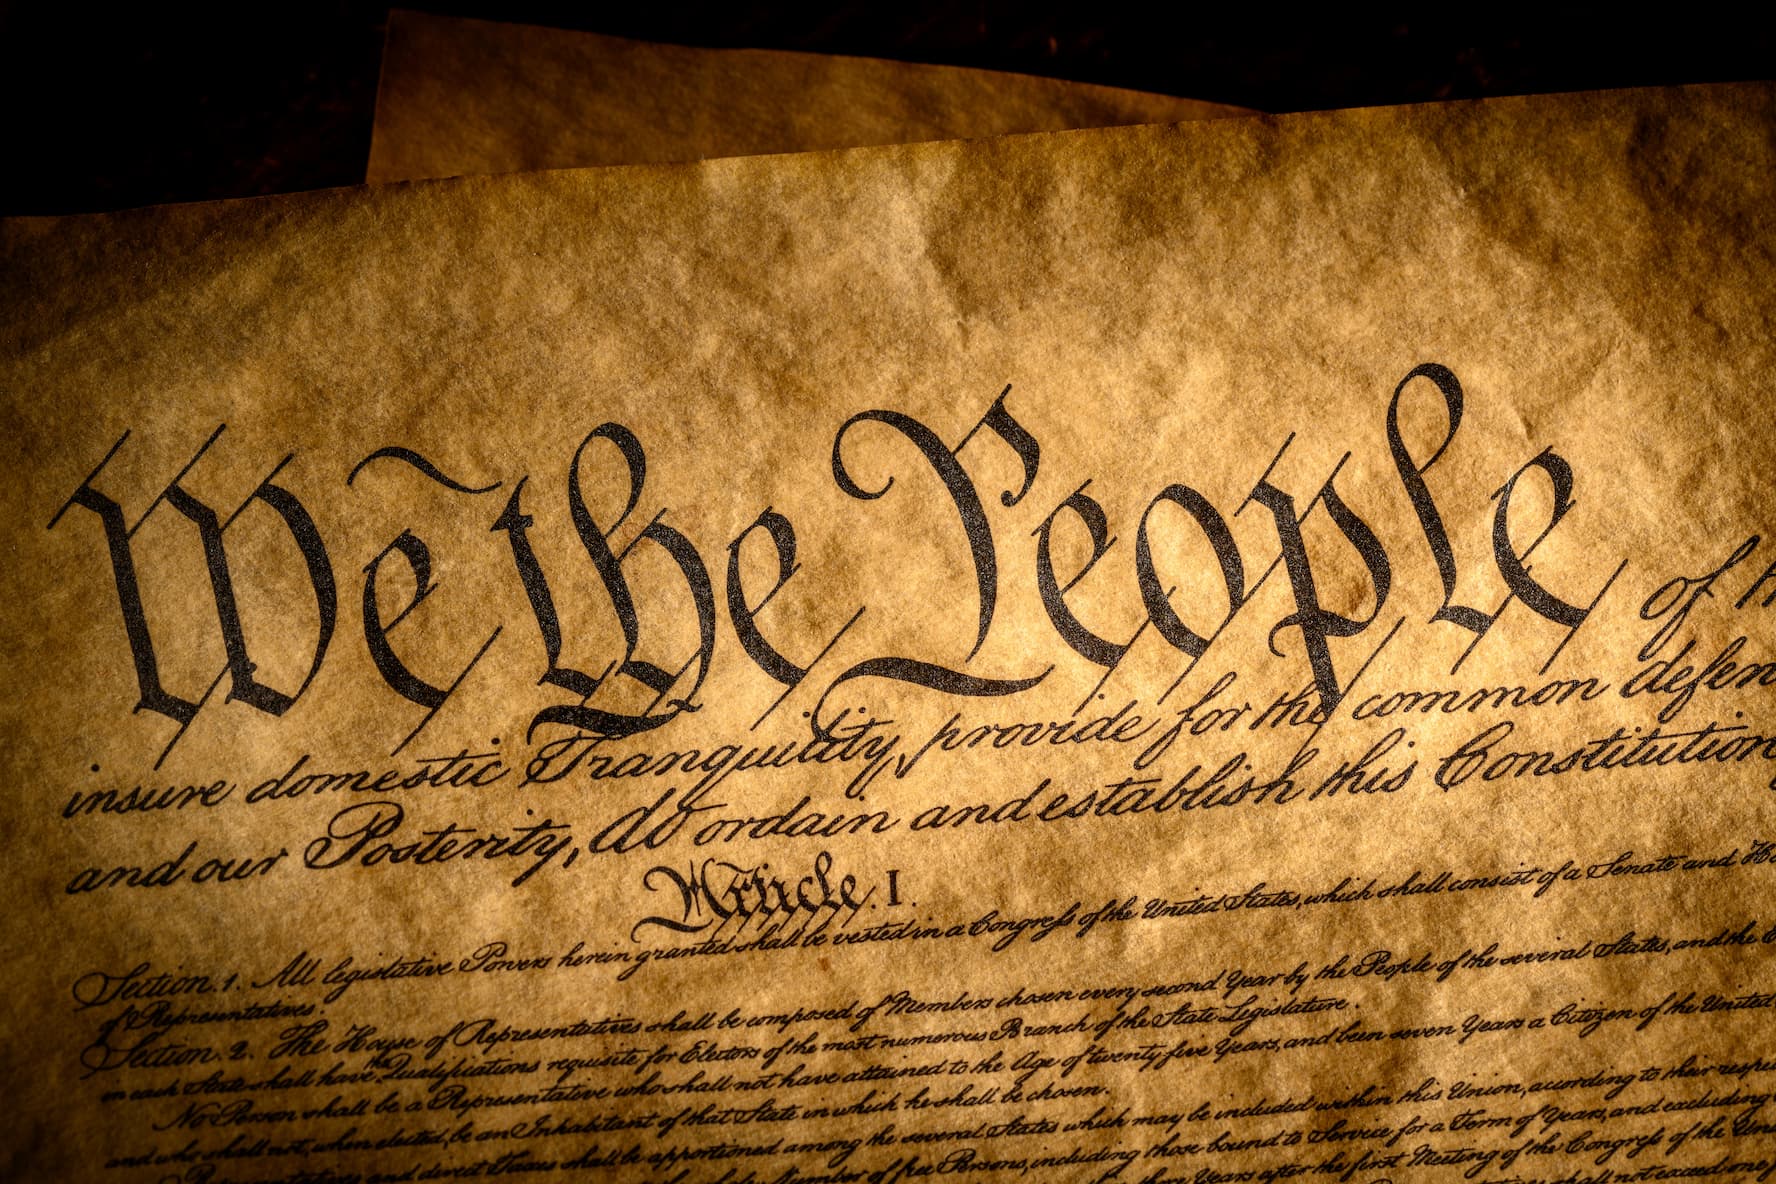 We the People of
insure domestic Tranquility, provide for the common defen
and our Posterity, do ordain and establish this Constitution
Article. I.
Section. 1. All legislative Powers herein granted shall be vested in a Congress of the United States, which shall consist of a Senate and
of Representatives.
Section. 2. The House of Representatives shall be composed of Members chosen every second Year by the People of the several States, and the
in each State shall have the Qualifications requisite for Electors of the most numerous Branch of the State Legislature.
No Person shall be a Representative who shall not have attained to the Age of twenty five Years, and been seven Years a Citizen of the United
and who shall not, when elected, be an Inhabitant of that State in which he shall be chosen.
Representatives and direct Taxes shall be apportioned among the several States which may be included within this Union, according to their respe
Number of free Persons, including those bound to Service for a Term of Years, and excluding
Years after the first Meeting of the Congress of the
shall not exceed one f